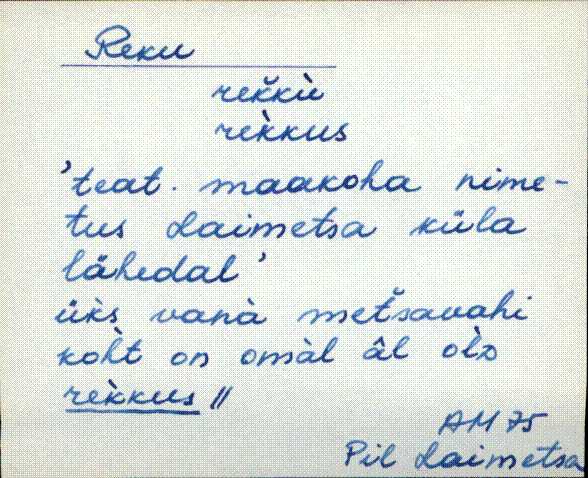 Reku
rek̆kù
rèkkus
'teat. maakoha nime-
tus Laimetsa küla
lähedal'
üks vanà metšavahi
koht on omàl âl olõ
rèkkus //
AM 75
Pil Laimetsa